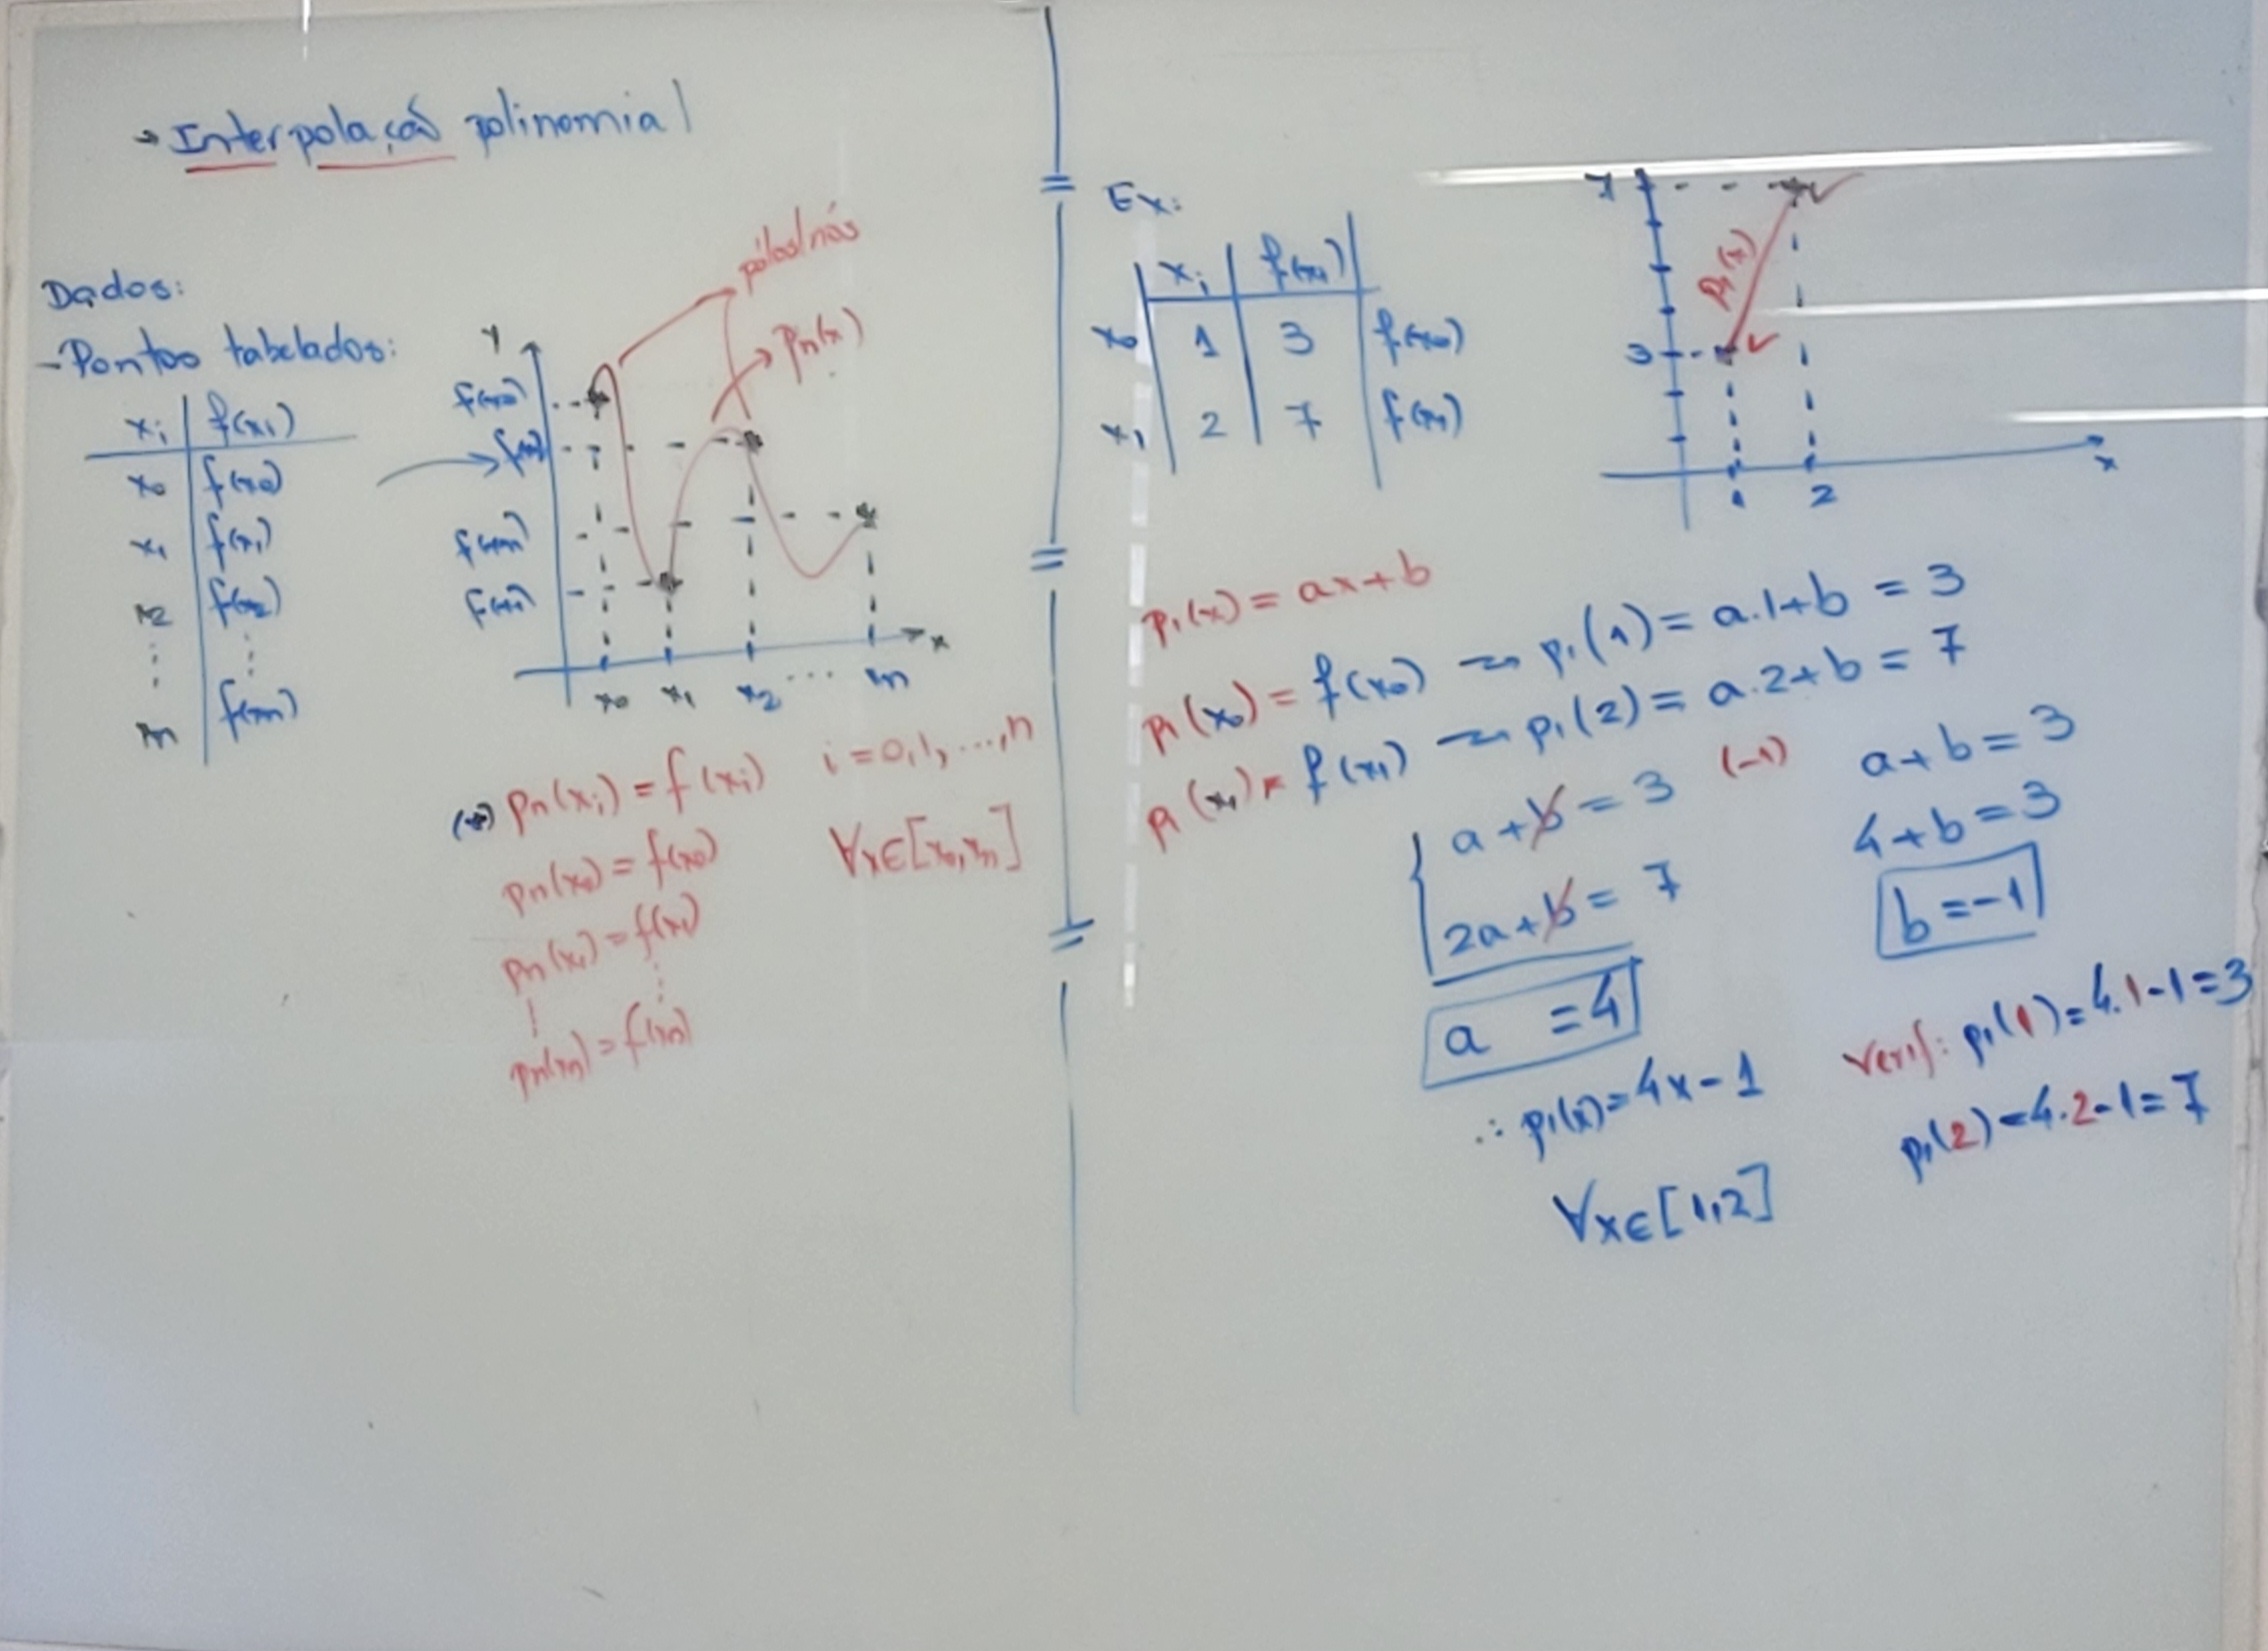 → Interpolação polinomial
Dados:
- Pontos tabelados:
xi | f(xi)
x0 | f(x0)
x1 | f(x1)
x2 | f(x2)
⋮ ⋮
xn | f(xn)
pólos/nós
pn(x)
y
f(x0)
f(x2)
f(xn)
f(x1)
x
x0 x1 x2 ... xn
(*) pn(xi) = f(xi) i=0,1,...,n
pn(x0) = f(x0) ∀x∈[x0,xn]
pn(x1) = f(x1)
⋮ ⋮
pn(xn) = f(xn)
Ex:
xi | f(xi)
x0 | 1 | 3 | f(x0)
x1 | 2 | 7 | f(x1)
7
p1(x)
3
x
1 2
p1(x) = ax+b
p1(x0) = f(x0) → p1(1) = a.1+b = 3
p1(x1) = f(x1) → p1(2) = a.2+b = 7
a+b = 3 (-1)
2a+b = 7
a = 4
a+b = 3
4+b = 3
b = -1
∴ p1(x) = 4x-1
∀x∈[1,2]
Verif: p1(1) = 4.1-1 = 3
p1(2) = 4.2-1 = 7